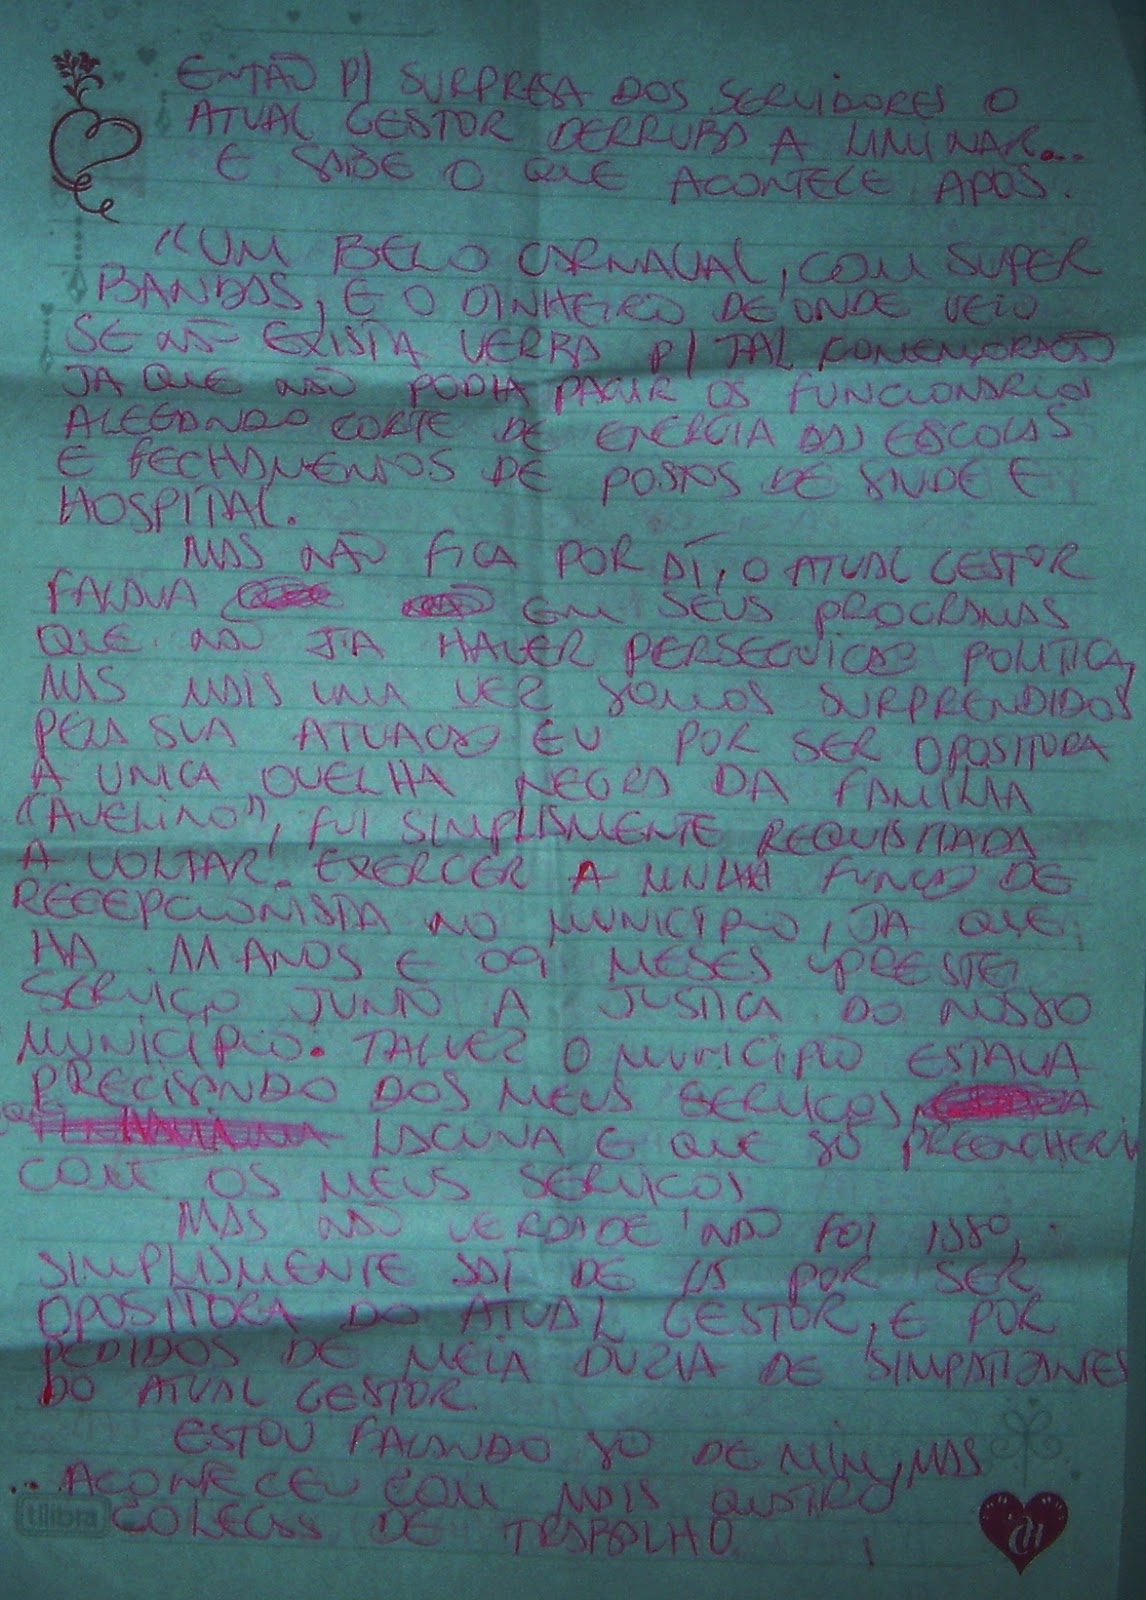 ENTÃO P/ SURPRESA DOS SERVIDORES O
ATUAL GESTOR DERRUBA A LIMINAR...
E SABE O QUE ACONTECE APOS.
"UM BELO CARNAVAL, COM SUPER
BANDAS, E O DINHEIRO DE ONDE VEIO
SE NÃO EXISTIA VERBA P/ TAL COMEMORAÇÃO
JA QUE NÃO PODIA PAGAR OS FUNCIONARIOS
ALEGANDO CORTE DE ENERGIA DAS ESCOLAS
E FECHAMENTOS DE POSTOS DE SAUDE E
HOSPITAL.
MAS NÃO FICA POR AÍ, O ATUAL GESTOR
FALAVA EM SEUS PROGRAMAS
QUE NÃO IA HAVER PERSEGUICAO POLITICA,
MAS MAIS UMA VEZ SOMOS SURPRENDIDOS
PELA SUA ATUACAO EU POR SER OPOSITORA
A UNICA OVELHA NEGRA DA FAMILIA
"AVELINO", FUI SIMPLISMENTE REQUISITADA
A VOLTAR EXERCER A MINHA FUNÇÃO DE
RECEPCIONISTA NO MUNICIPIO, JA QUE
HA 11 ANOS E 09 MESES PRESTEI
SERVIÇO JUNTO A JUSTICA DO NOSSO
MUNICIPIO. TALVEZ O MUNICIPIO ESTAVA
PRECISANDO DOS MEUS SERVICOS,
LACUNA E QUE SO PREENCHERIA
COM OS MEUS SERVICOS
MAS NÃO VERDADE NÃO FOI ISSO,
SIMPLISMENTE SAÍ DE LA POR SER
OPOSITORA DO ATUAL GESTOR, E POR
PEDIDOS DE MEIA DUZIA DE SIMPATIZANTES
DO ATUAL GESTOR.
ESTOU FALANDO SO DE MIM, MAS
... ACONTECEU COM MAIS QUATRO
COLEGAS DE TRABALHO.
tilibra